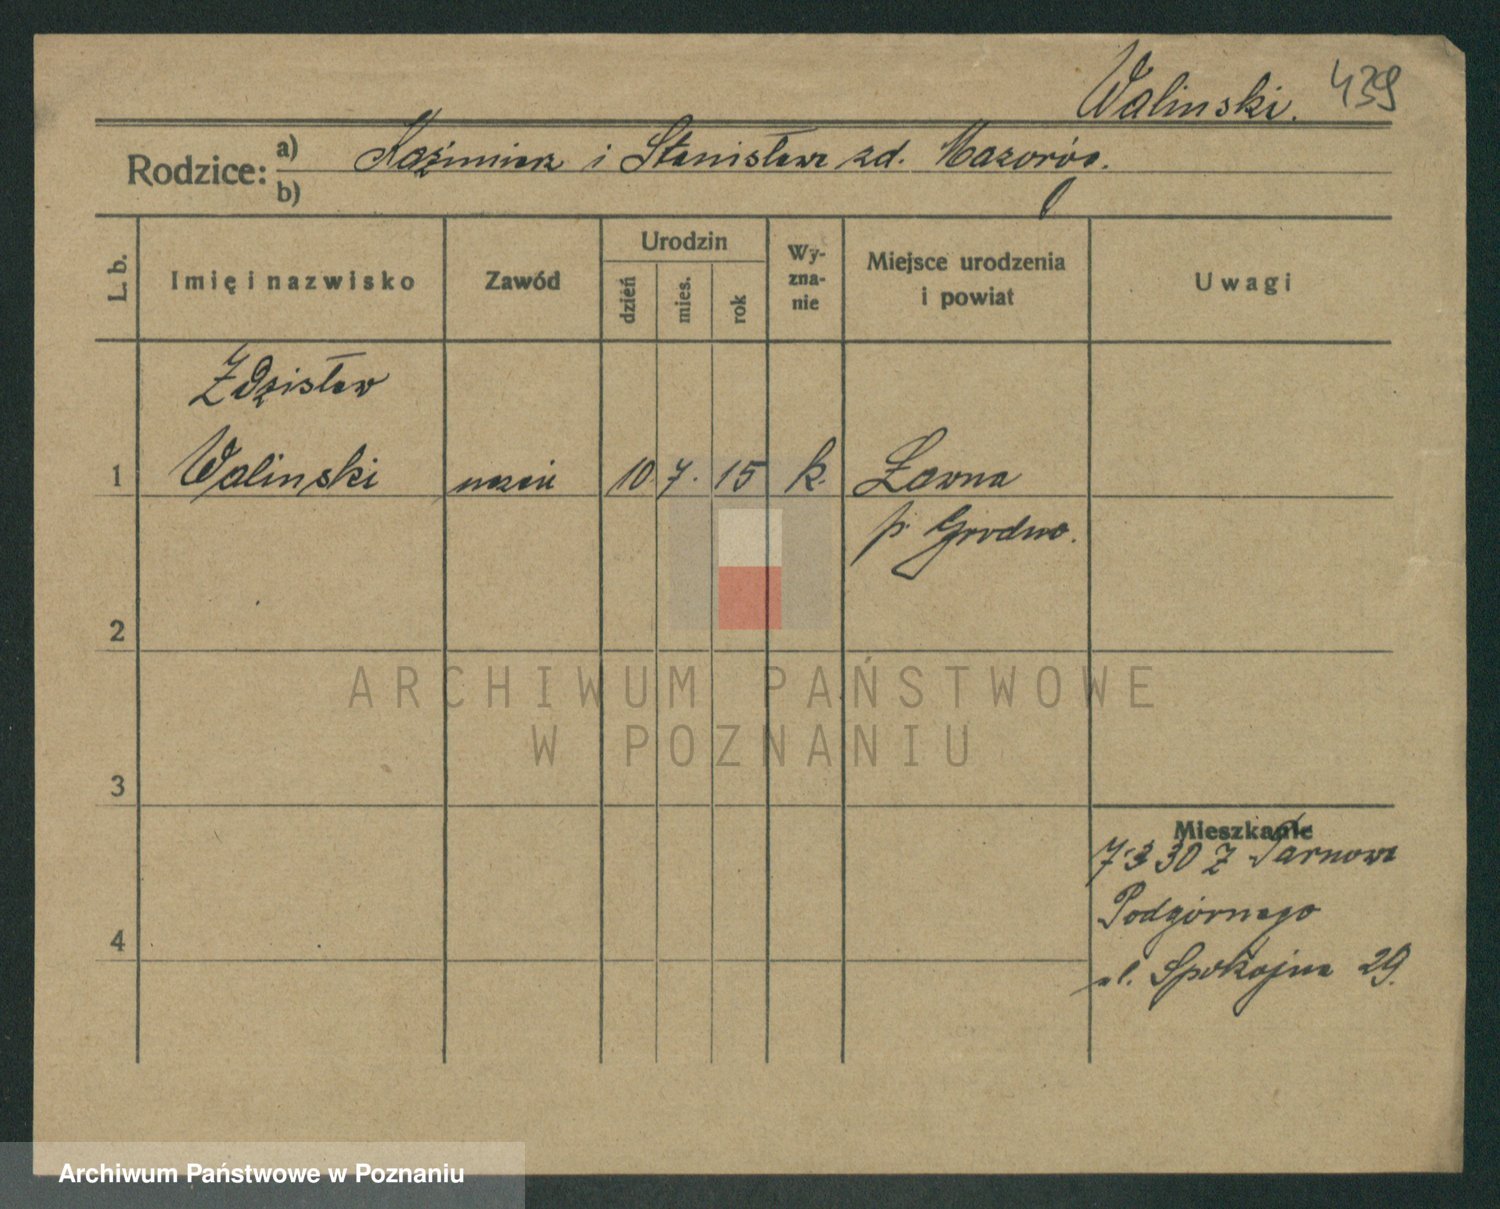 Walinski. 439
Rodzice: a) Kaźimierz i Stanisława zd.
b)
L. b.
Imię i nazwisko
Zawód
Urodzin
dzień
mies.
rok
Wy-
zna-
nie
Miejsce urodzenia
i powiat
Uwagi
Zdzisław
1 Walinski uczeń 10. 7. 15 k. Ławna
p. Grodno.
2
ARCHIWUM PAŃSTWOWE
W POZNANIU
3
Mieszkanie
7.3 30 z Tarnowa
4 Podgórnego
ul. Spokojna 29.
Archiwum Państwowe w Poznaniu